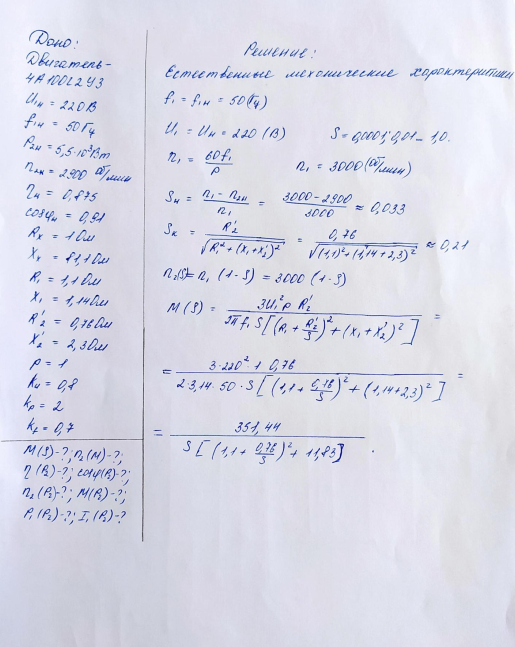 Дано:
Двигатель-
4А100L2У3
U₁н = 220В
f₁н = 50Гц
P₂н = 5,5·10³Вт
n₂н = 2900 об/мин
ηн = 0,875
cosφн = 0,91
Rх = 1 Ом
Xх = 81,1 Ом
R₁ = 1,1 Ом
X₁ = 1,14 Ом
R₂' = 0,76 Ом
X₂' = 2,3 Ом
p = 1
kн = 0,8
kр = 2
kt = 0,7
M(S)-?; n₂(M)-?;
η(P₂)-?; cosφ(P₂)-?;
n₂(P₂)-?; M(P₂)-?;
P₁(P₂)-?; I₁(P₂)-?
Решение:
Естественные механические характеристики
f₁ = f₁н = 50 (Гц)
U₁ = U₁н = 220 (В) S = 0,0001; 0,01 … 1,0.
n₁ = 60f₁/p n₁ = 3000 (об/мин)
Sн = (n₁ - n₂н)/n₁ = (3000 - 2900)/3000 ≈ 0,033
Sк = R₂'/√(R₁² + (X₁ + X₂')²) = 0,76/√((1,1)² + (1,14 + 2,3)²) ≈ 0,21
n₂(S) = n₁ (1 - S) = 3000 (1 - S)
M(S) = 3U₁² p R₂' / 2π f₁ S [(R₁ + R₂'/S)² + (X₁ + X₂')²] =
= 3·220²·1·0,76 / 2·3,14·50·S [(1,1 + 0,76/S)² + (1,14 + 2,3)²] =
= 351,44 / S [(1,1 + 0,76/S)² + 11,83] .